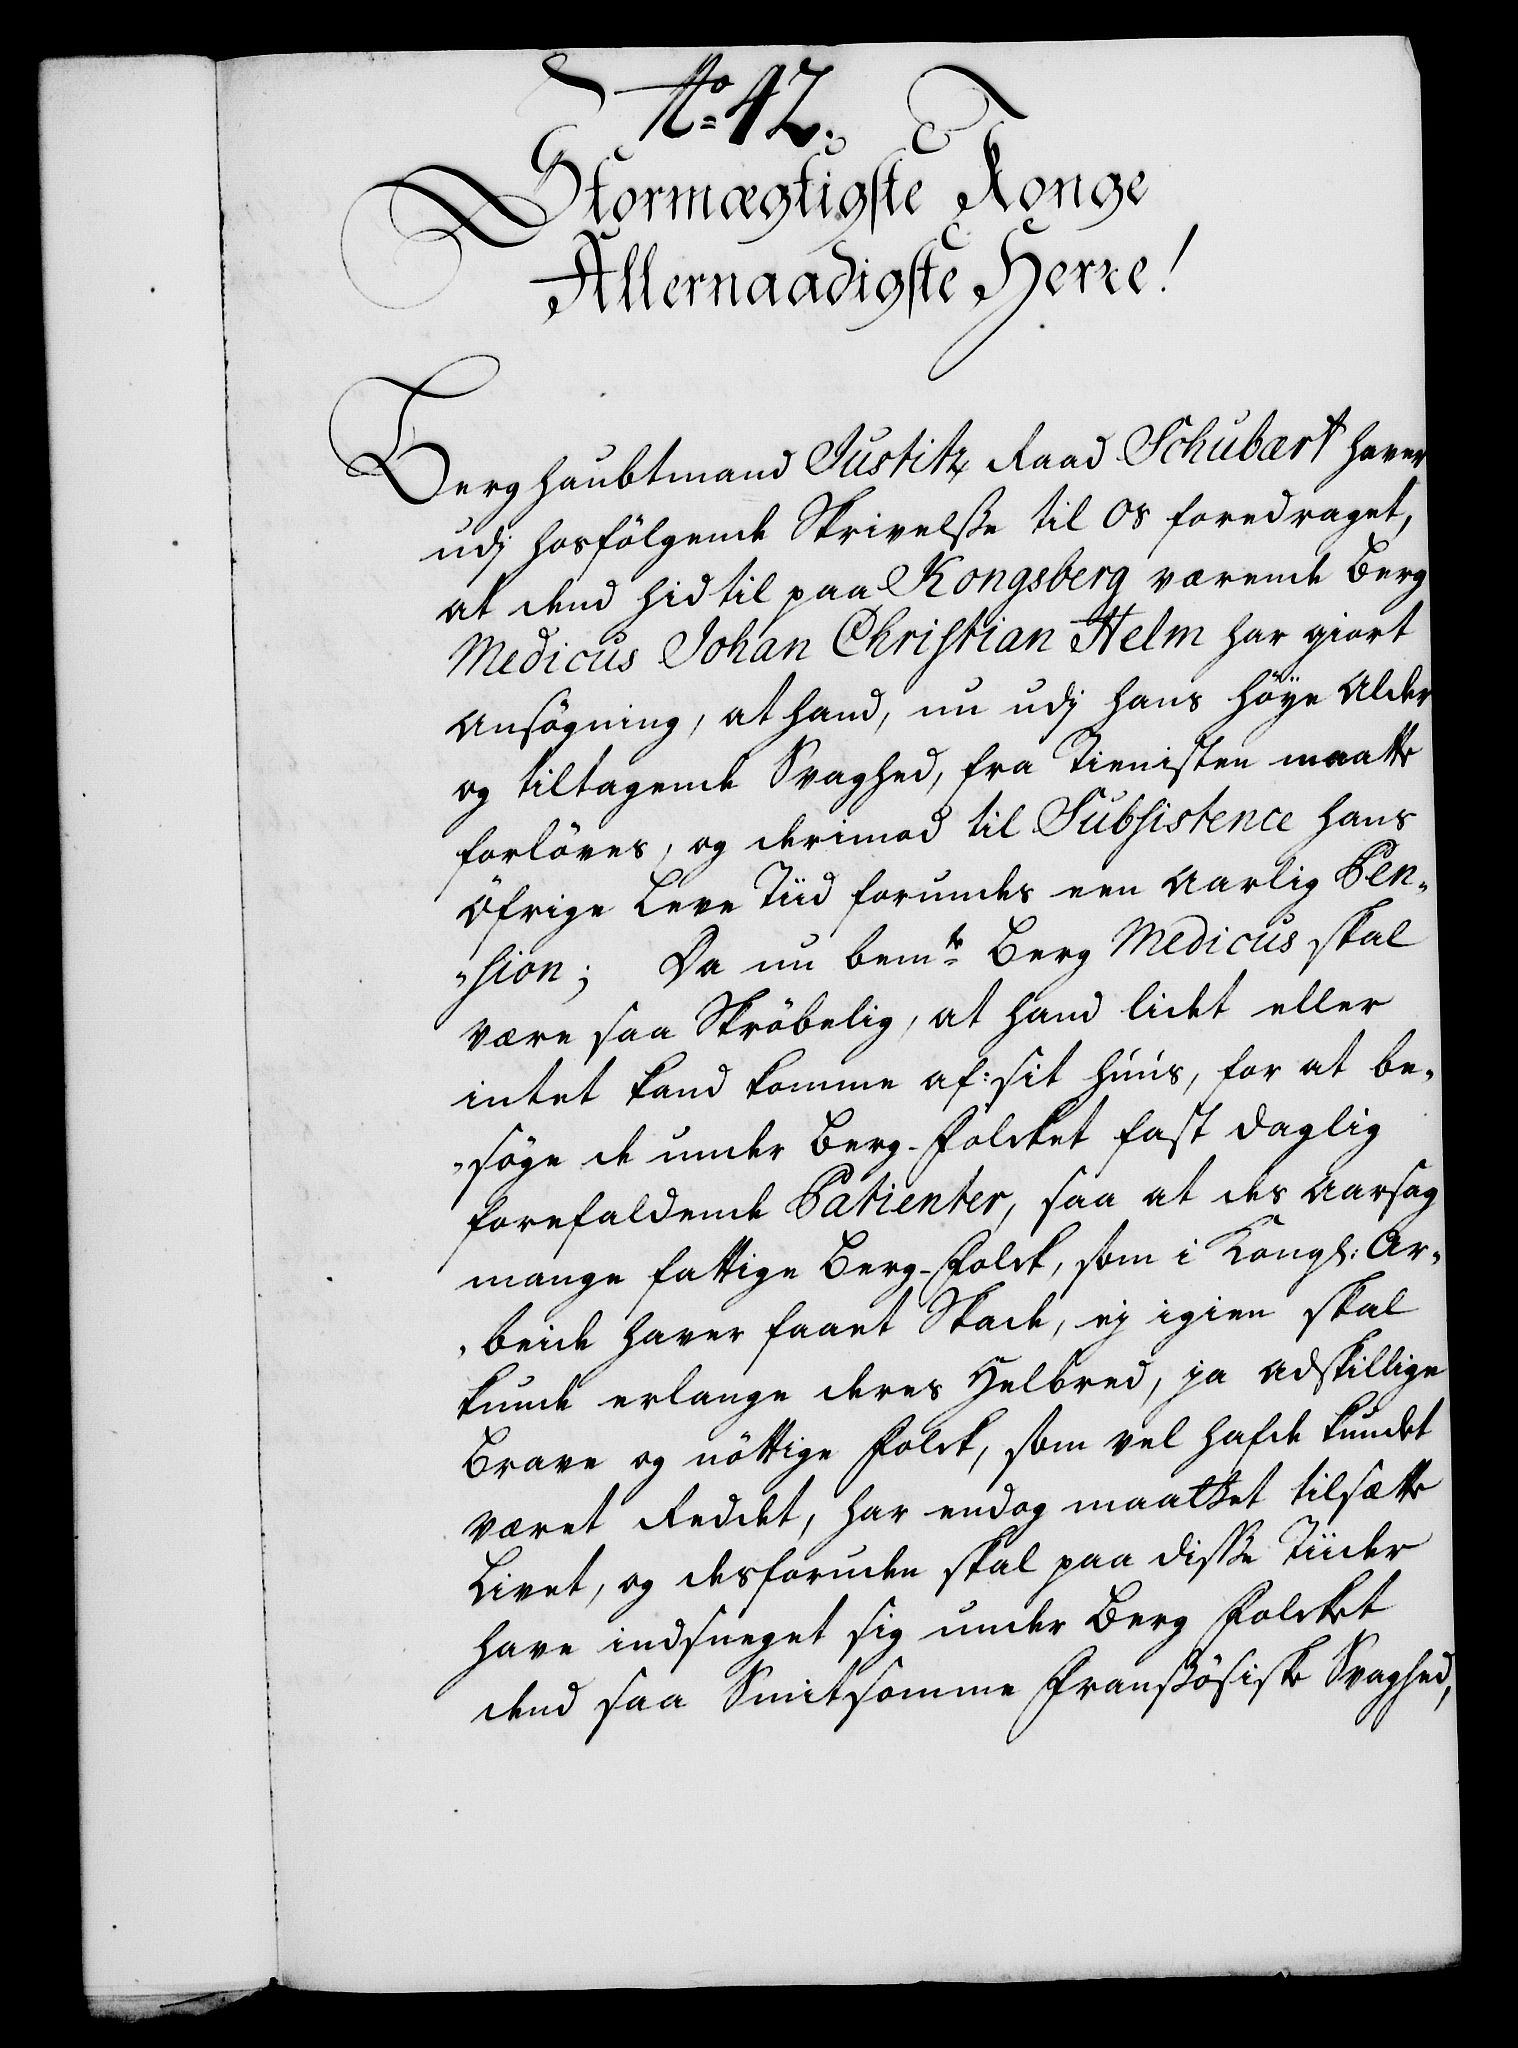 No 42.
Stormægtigste Konge
Allernaadigste Herre!
Berghaubtmand Justitz Raad Schubart haver
udj hosfölgende Skrivelsse til Os foredraget,
at dend hidtil paa Kongsberg værende Berg
Medicus Johan Christian Helm har giort
Ansögning, at hand, nu udj hans höye Alder
og tiltagende Svaghed, fra Tienisten maatte
forlöves, og derimod til Subsistence hans
Öfrige Leve Tiid forundes een Aarlig Pen„
„sion; Da nu bemte Berg Medicus skal
være saa Skröbelig, at hand lidet eller
intet kand komme af: sit Huus, for at be„
„söge de under Berg-Folcket fast daglig
forefaldende Patienter, saa at des Aarsag
mange fattige Berg-Folck, som i Kongl: Ar„
„beide haver faaet Skade, ej igien skal
kunde erlange deres Helbred, ja adskillige
Brave og nöttige Folck, som vel hafde kundet
været Reddet, har endog maattet tilsætte
Livet, og desforuden skal paa disse Tiider
have indsneget sig under Berg Folcket
dend saa Smitsomme Franssösiske Svaghed,